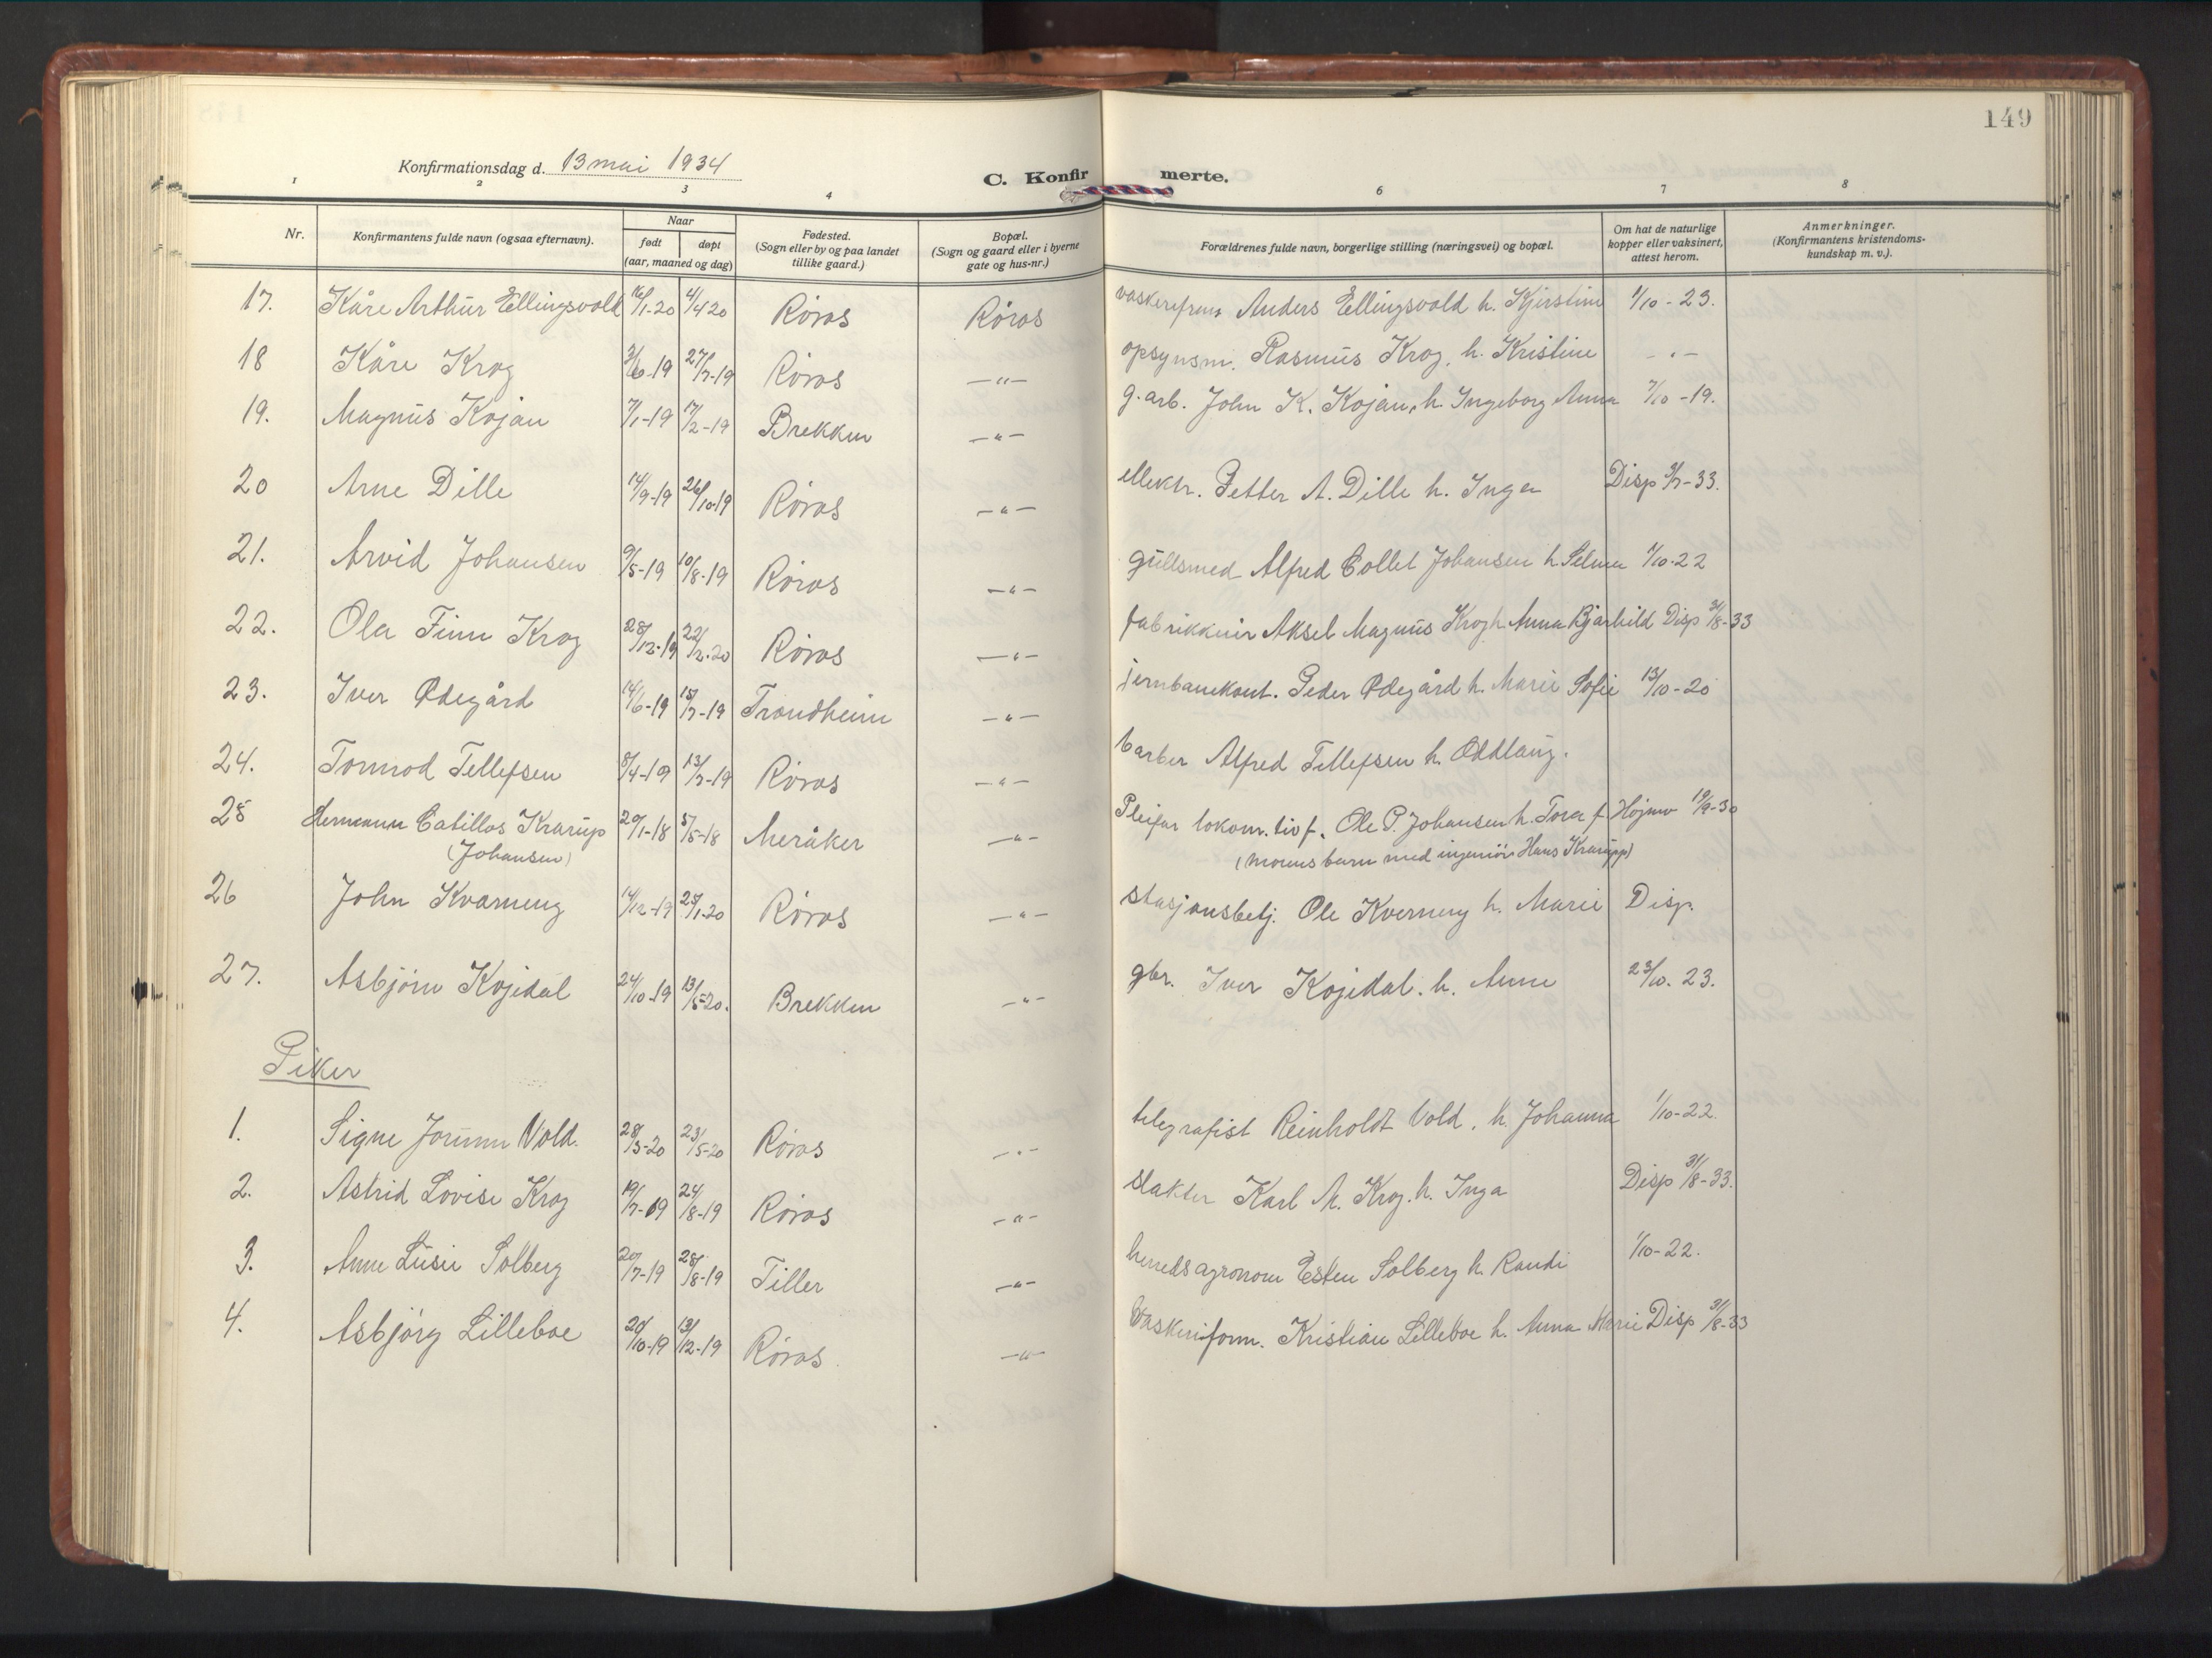 149
Konfirmationsdag d. 13 mai 1934
C. Konfirmerte.
1 2 3 4 6 7 8
Nr.
Konfirmantens fulde navn (ogsaa efternavn).
Naar
født døpt
(aar, maaned og dag)
Fødested.
(Sogn eller by og paa landet
tillike gaard.)
Bopæl.
(Sogn og gaard eller i byerne
gate og hus-nr.)
Forældrenes fulde navn, borgerlige stilling (næringsvei) og bopæl.
Om hat de naturlige
kopper eller vaksinert,
attest herom.
Anmerkninger.
(Konfirmantens kristendoms-
kundskap m. v.).
17. Kåre Arthur Ellingsvold 16/1-20 4/4 20 Röros Röros Anders Ellingsvold h. Kjerstine 1/10-23.
18 Kåre Krog 3/6-19 27/7-19 Röros -"- opsynsm. Rasmus Krog, h. Kristine -"-
19. Magnus Kojan 7/1-19 17/2-19 Brekken -"- g.arb. John K. Kojan, h. Ingeborg Anna 7/10-19.
20 Arne Dille 14/9-19 26/10-19 Röros -"- ellektr. Petter A. Dille h. Inga Disp 3/7-33.
21. Arvid Johansen 9/5-19 10/8-19 Röros -"- gullsmed Alfred Collet Johansen h Selma 1/10-22
22. Ola Finn Krog 28/12-19 22/2-20 Röros -"- Aksel Magnus Krog h. Anna Bjarhild Disp 31/8-33
23. Iver Ødegård 14/6-19 15/7-19 Trondheim -"- jernbanekont. Peder Ødegård h. Marie Sofie 13/10-20
24. Tormod Tellefsen 8/4-19 13/7-19 Röros -"- barber Alfred Tellefsen h. Oddlaug.
25 Hermann Catillos Krarup 20/1-18 5/5-18 Meråker -"- Pleifar lokom.tivf. Ole P. Johansen h. Tora f. Højmo 19/9-30
(Johansen) (morens barn med ingeniör Hans Krarupp)
26 John Kvarneng 14/12-19 25/1-20 Röros -"- stasjonsbetj. Ole Kverneng h. Marie Disp.
27. Asbjörn Kojedal 24/10-19 13/5-20. Brekken -"- gbr. Iver Kojedal. h. Anne 23/10. 23.
Piker
1. Signe Jorunn Vold. 28/3-20 23/5-20 Röros -"- telegrafist Reinholdt Vold, h. Johanna 1/10-22.
2. Astrid Lovise Krog 19/7-19 24/8-19 Röros -"- slakter Karl M. Krog. h. Inga Disp 31/8-33.
3. Anne Lusie Solberg 20/7-19 28/8-19 Tiller -"- herredsagronom Esten Solberg h. Randi 1/10-22.
4. Asbjörg Lilleboe 20/10-19 13/12-19 Röros -"- Vaskeriform. Kristian Lilleboe h. Anna Marie Disp 31/8-33